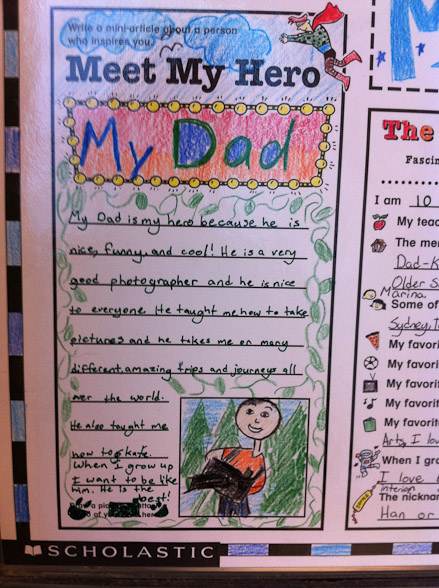 Write a mini-article about a person
who inspires you.
Meet My Hero
My Dad
My Dad is my hero because he is
nice, funny, and cool! He is a very
good photographer and he is nice
to everyone. He taught me how to take
pictures and he takes me on many
different, amazing trips and journeys all
over the world.
He also taught me
how to skate.
When I grow up
I want to be like
him. He is the
best!
SCHOLASTIC
The
Fascin
I am 10
My teac
The me
Dad-K
Older S
Marina.
Some of
Sydney, I
My favori
My favori
My favori
My favori
My favori
Arts, I lov
When I gro
I love
interior
The nicknam
Han or